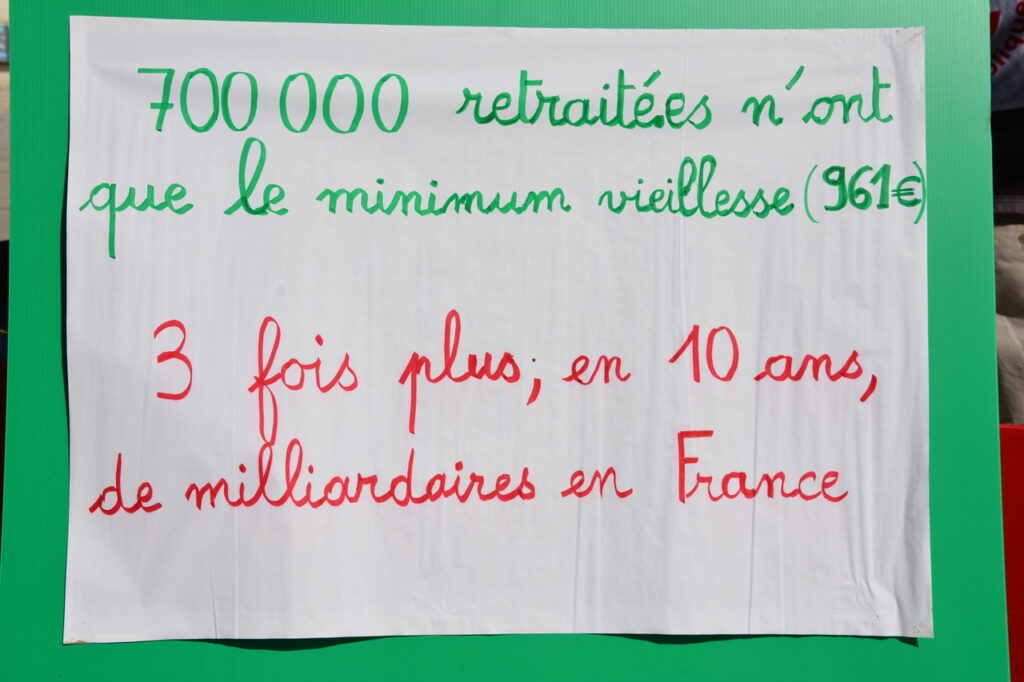 700 000 retraité.es n'ont
que le minimum vieillesse (961€)
3 fois plus, en 10 ans,
de milliardaires en France